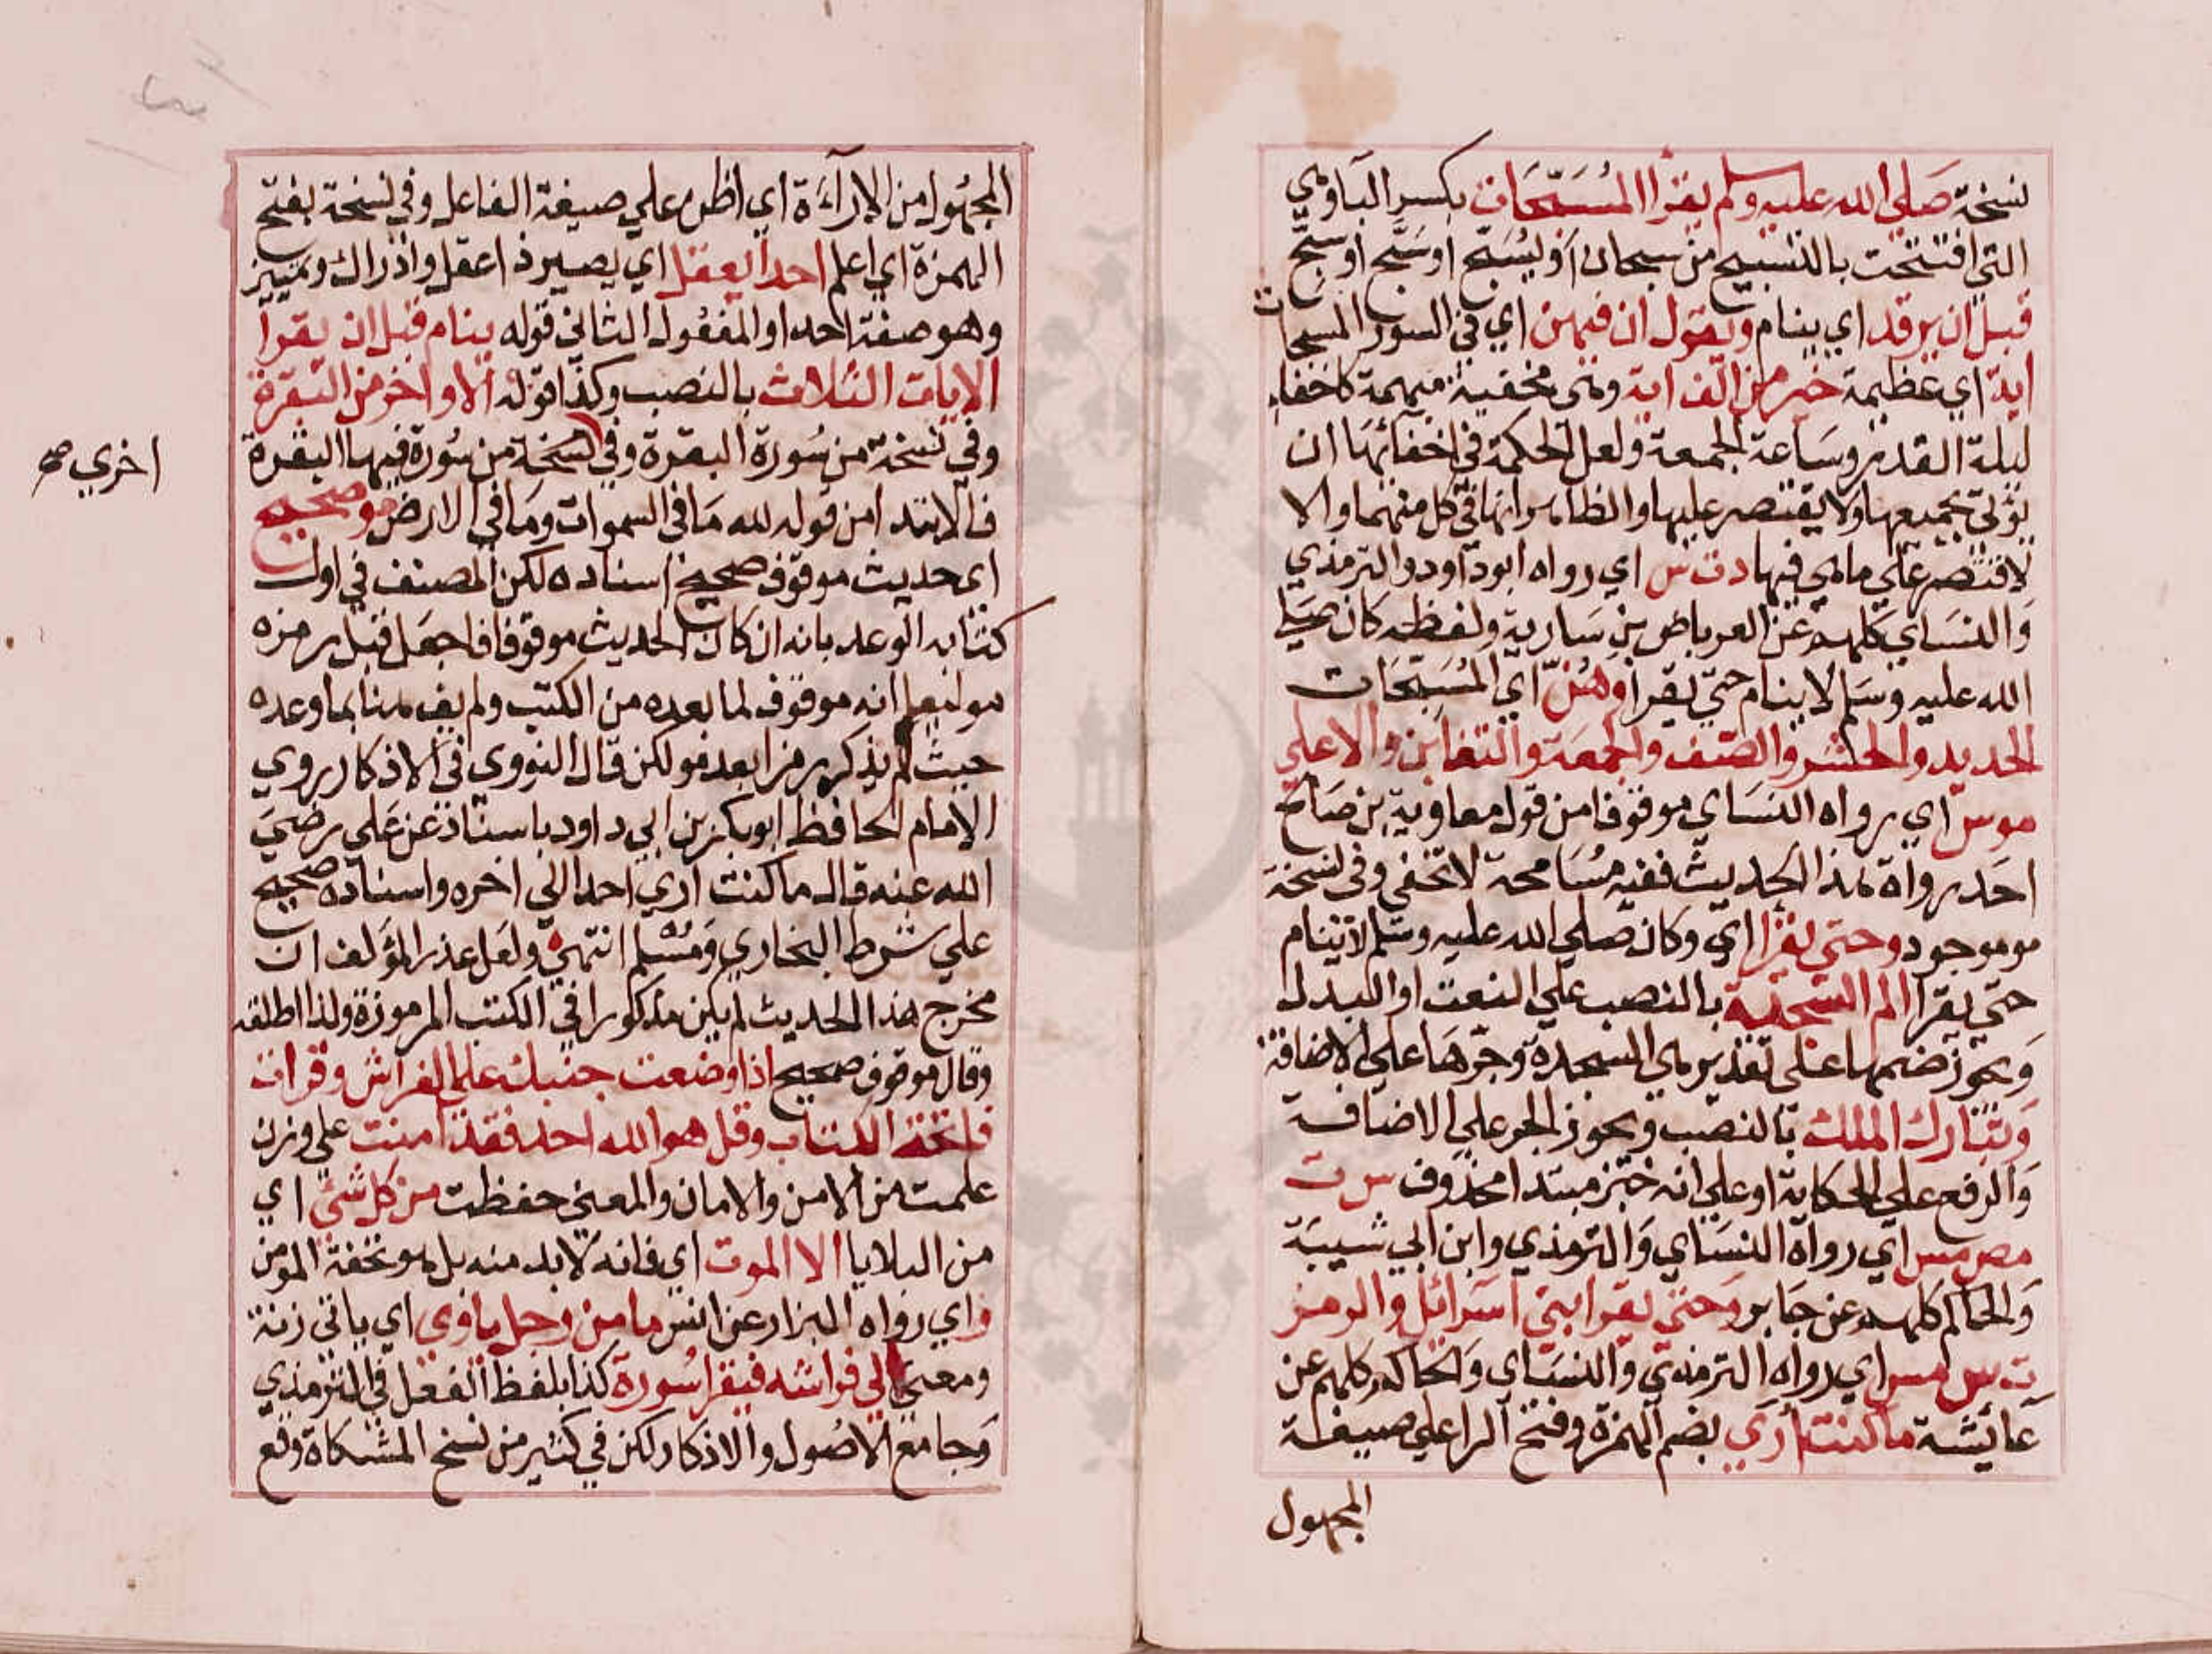 نسخة صلى الله عليه وسلم يقرا المُسَبِّحَات بكسر الباء وهي
التي افتتحت بالتسبيح من سبحان او يُسَبّح او سَبَّح او سَبّح
قبل ان يرقد اي ينام ويقول ان فيهن اي في السور المسبحات
اية اي عظيمة خير من الف اية وهي مخفية مبهمة كاخفاء
ليلة القدر وساعة الجمعة ولعل الحكمة في اخفائها ان
يؤتى بجميعها ولا يقتصر عليها والظاهر انها في كل منهما والا
لاقتصر على ما هي فيها دت س اي رواه ابو داود والترمذي
والنساي كلهم عن العرباض بن سارية ولفظه كان صلى
الله عليه وسلم لا ينام حتى يقرا وهُنّ اي المُسَبِّحَات
الحديد والحشر والصف والجمعة والتغابن والاعلى
موس اي رواه النساي موقوفا من قول معاوية بن صالح
احد رواة هذا الحديث ففيه مُسَامحة لا تخفى وفي نسخة
مو موجود وحتى يقرا اي وكان صلى الله عليه وسلم لا ينام
حتى يقرا الم السجدة بالنصب على النعت او البدل
ويجوز ضمها على تقدير هي السجدة وجرها على الاضافة
وتبارك الملك بالنصب ويجوز الجر على الاضافة
والرفع على الحكاية او على انه خبر مبتدا محذوف س ت
مص مس اي رواه النساي والترمذي وابن ابي شيبة
والحاكم كلهم عن جابر وحتى يقرا بني اسرائل والزمر
ت س مس اي رواه الترمذي والنساي والحاكم كلهم عن
عايشة ما كنت اُرَي بضم الهمزة وفتح الرا على صيغة
المجهول
المجهول من الاراءة اي اظن على صيغة الفاعل وفي نسخة بفتح
الهمزة اي اعلم احدا يعقل اي يصير ذا عقل وادراك وتمييز
وهو صفة احد او المفعول الثاني قوله ينام قبل ان يقرا
الايات الثلاث بالنصب وكذا قوله الاواخر من البقرة
وفي نسخة من سُورة البقرة وفي نسخة من سُورة فيها البقرة
اخري صح
فالابتدا من قوله لله ما في السموات وما في الارض مو صحيح
اي حديث موقوف صحيح اسناده لكن المصنف في اول
كتابه الوعد بانه ان كان الحديث موقوفا فاجعل قبل رمزه
مو ليعلم انه موقوف لما بعده من الكتب ولم يف هنا بما وعده
حيث لم يذكر رمزا بعد مو لكن قال النووي في الاذكار روي
الامام الحافظ ابو بكر بن ابي داود باسناد عن علي رضي
الله عنه قال ما كنت اري احدا الي اخره واسناده صحيح
علي شرط البخاري ومُسْلم انتهي ولعل عذر المؤلف ان
مخرج هذا الحديث لم يكن مذكورا في الكتب المرموزة ولذا اطلقه
وقال موقوف صحيح اذا وضعت جنبك علي الفراش وقرات
فاتحة الكتاب وقل هو الله احد فقد امنت علي وزن
علمت من الامن والامان والمعني حفظت من كل شئ اي
من البلايا الا الموت اي فانه لا بد منه بل هو تحفة المومن
ر اي رواه البزار عن انس ما من رجل ياوي اي ياتي زنة
ومعني الي فراشه فيقرا سُورة كذا بلفظ الفعل في الترمذي
وجامع الاصُول والاذكار لكن في كثير من نسخ المشكاة وقع